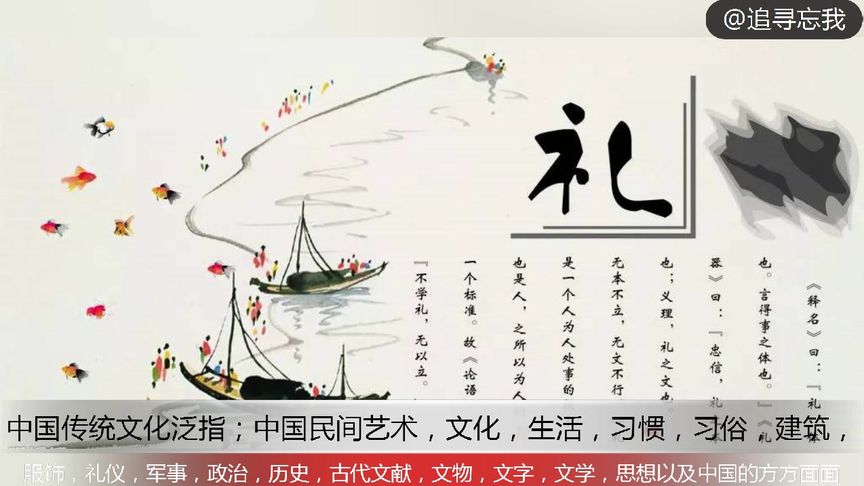 @追寻忘我
礼
《释名》曰：『礼，体
也。言得事之体也。』《礼
器》曰：『忠信，礼之本
也；义理，礼之文也。
无本不立，无文不行
是一个人为人处事的
也是人，之所以为人
一个标准。故《论语
『不学礼，无以立。
中国传统文化泛指；中国民间艺术，文化，生活，习惯，习俗，建筑，
服饰，礼仪，军事，政治，历史，古代文献，文物，文字，文学，思想以及中国的方方面面